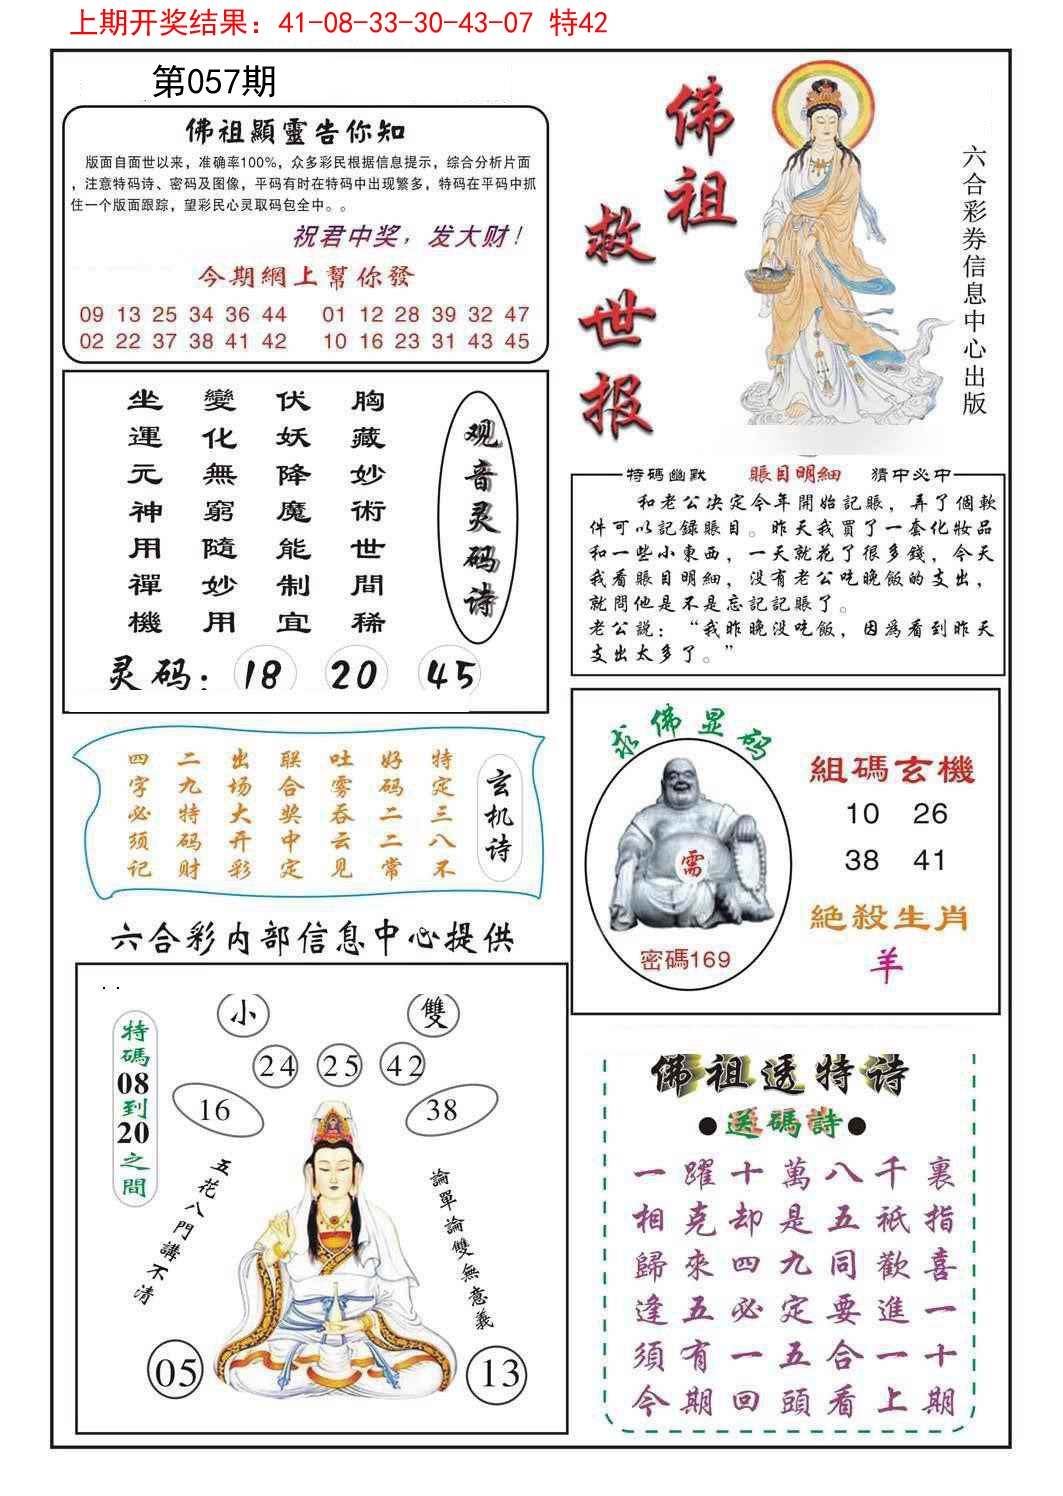 上期开奖结果：41-08-33-30-43-07 特42
第057期
佛祖顯靈告你知
版面自面世以来，准确率100%，众多彩民根据信息提示，综合分析片面
，注意特码诗、密码及图像，平码有时在特码中出现繁多，特码在平码中抓
住一个版面跟踪，望彩民心灵取码包全中。。
祝君中奖，发大财！
今期網上幫你發
09 13 25 34 36 44 01 12 28 39 32 47
02 22 37 38 41 42 10 16 23 31 43 45
佛祖
救世报
六合彩券信息中心出版
观音灵码诗
胸藏妙術世間稀
伏妖降魔能制宜
變化無窮隨妙用
坐運元神用禪機
灵码：18 20 45
特碼幽默 賬目明細 猜中必中
和老公决定今年開始記賬，弄了個軟
件可以記録賬目。昨天我買了一套化妝品
和一些小東西，一天就花了很多錢，今天
我看賬目明細，没有老公吃晚飯的支出，
就問他是不是忘記記賬了。
老公説：“我昨晚没吃飯，因為看到昨天
支出太多了。”
玄机诗
特定三八不
好码二二常
吐雾吞云见
联合奖中定
出场大开彩
二九特码财
四字必须记
求佛显码
需
密碼169
組碼玄機
10 26
38 41
絶殺生肖
羊
六合彩内部信息中心提供
小 雙
24 25 42
16 38
特碼08到20之間
五花八門講不清
論單論雙無意義
05 13
佛祖透特诗
●送碼詩●
一躍十萬八千裏
相克却是五祇指
歸來四九同歡喜
逢五必定要進一
須有一五合一十
今期回頭看上期